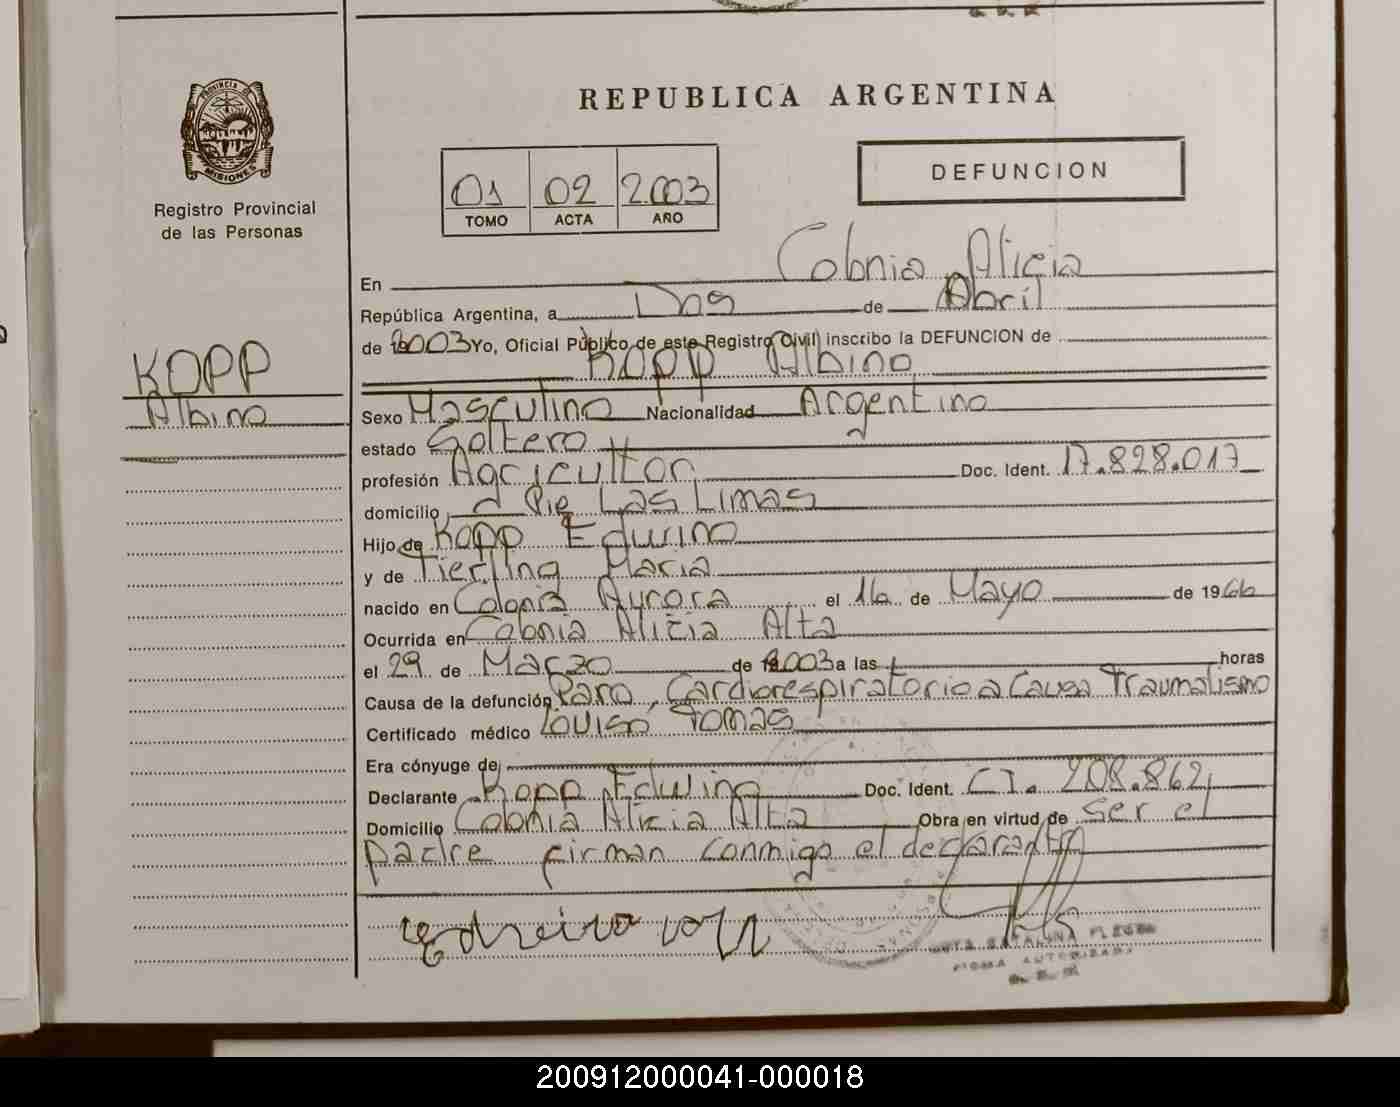 PROVINCIA DE
MISIONES
Registro Provincial
de las Personas
KOPP
Albino
REPUBLICA ARGENTINA
01 02 2.003
TOMO ACTA AÑO
DEFUNCION
En Colonia Alicia
República Argentina, a Dos de Abril
de 2003 Yo, Oficial Público de este Registro Civil inscribo la DEFUNCION de
Kopp Albino
Sexo Masculino Nacionalidad Argentino
estado Soltero
profesión Agricultor Doc. Ident. 17.828.017
domicilio Pje Las Limas
Hijo de Kopp Edwino
y de Tierling Maria
nacido en Colonia Aurora el 16 de Mayo de 1966
Ocurrida en Colonia Alicia Alta
el 29 de Marzo de 2003 a las horas
Causa de la defunción Paro Cardiorespiratorio a Causa Traumatismo
Certificado médico Tomas
Era cónyuge de
Declarante Kopp Edwino Doc. Ident. C.I. 208.862
Domicilio Colonia Alicia Alta Obra en virtud de ser el
padre firman conmigo el declarante
CATALINA
FIRMA AUTORIZADA
200912000041-000018